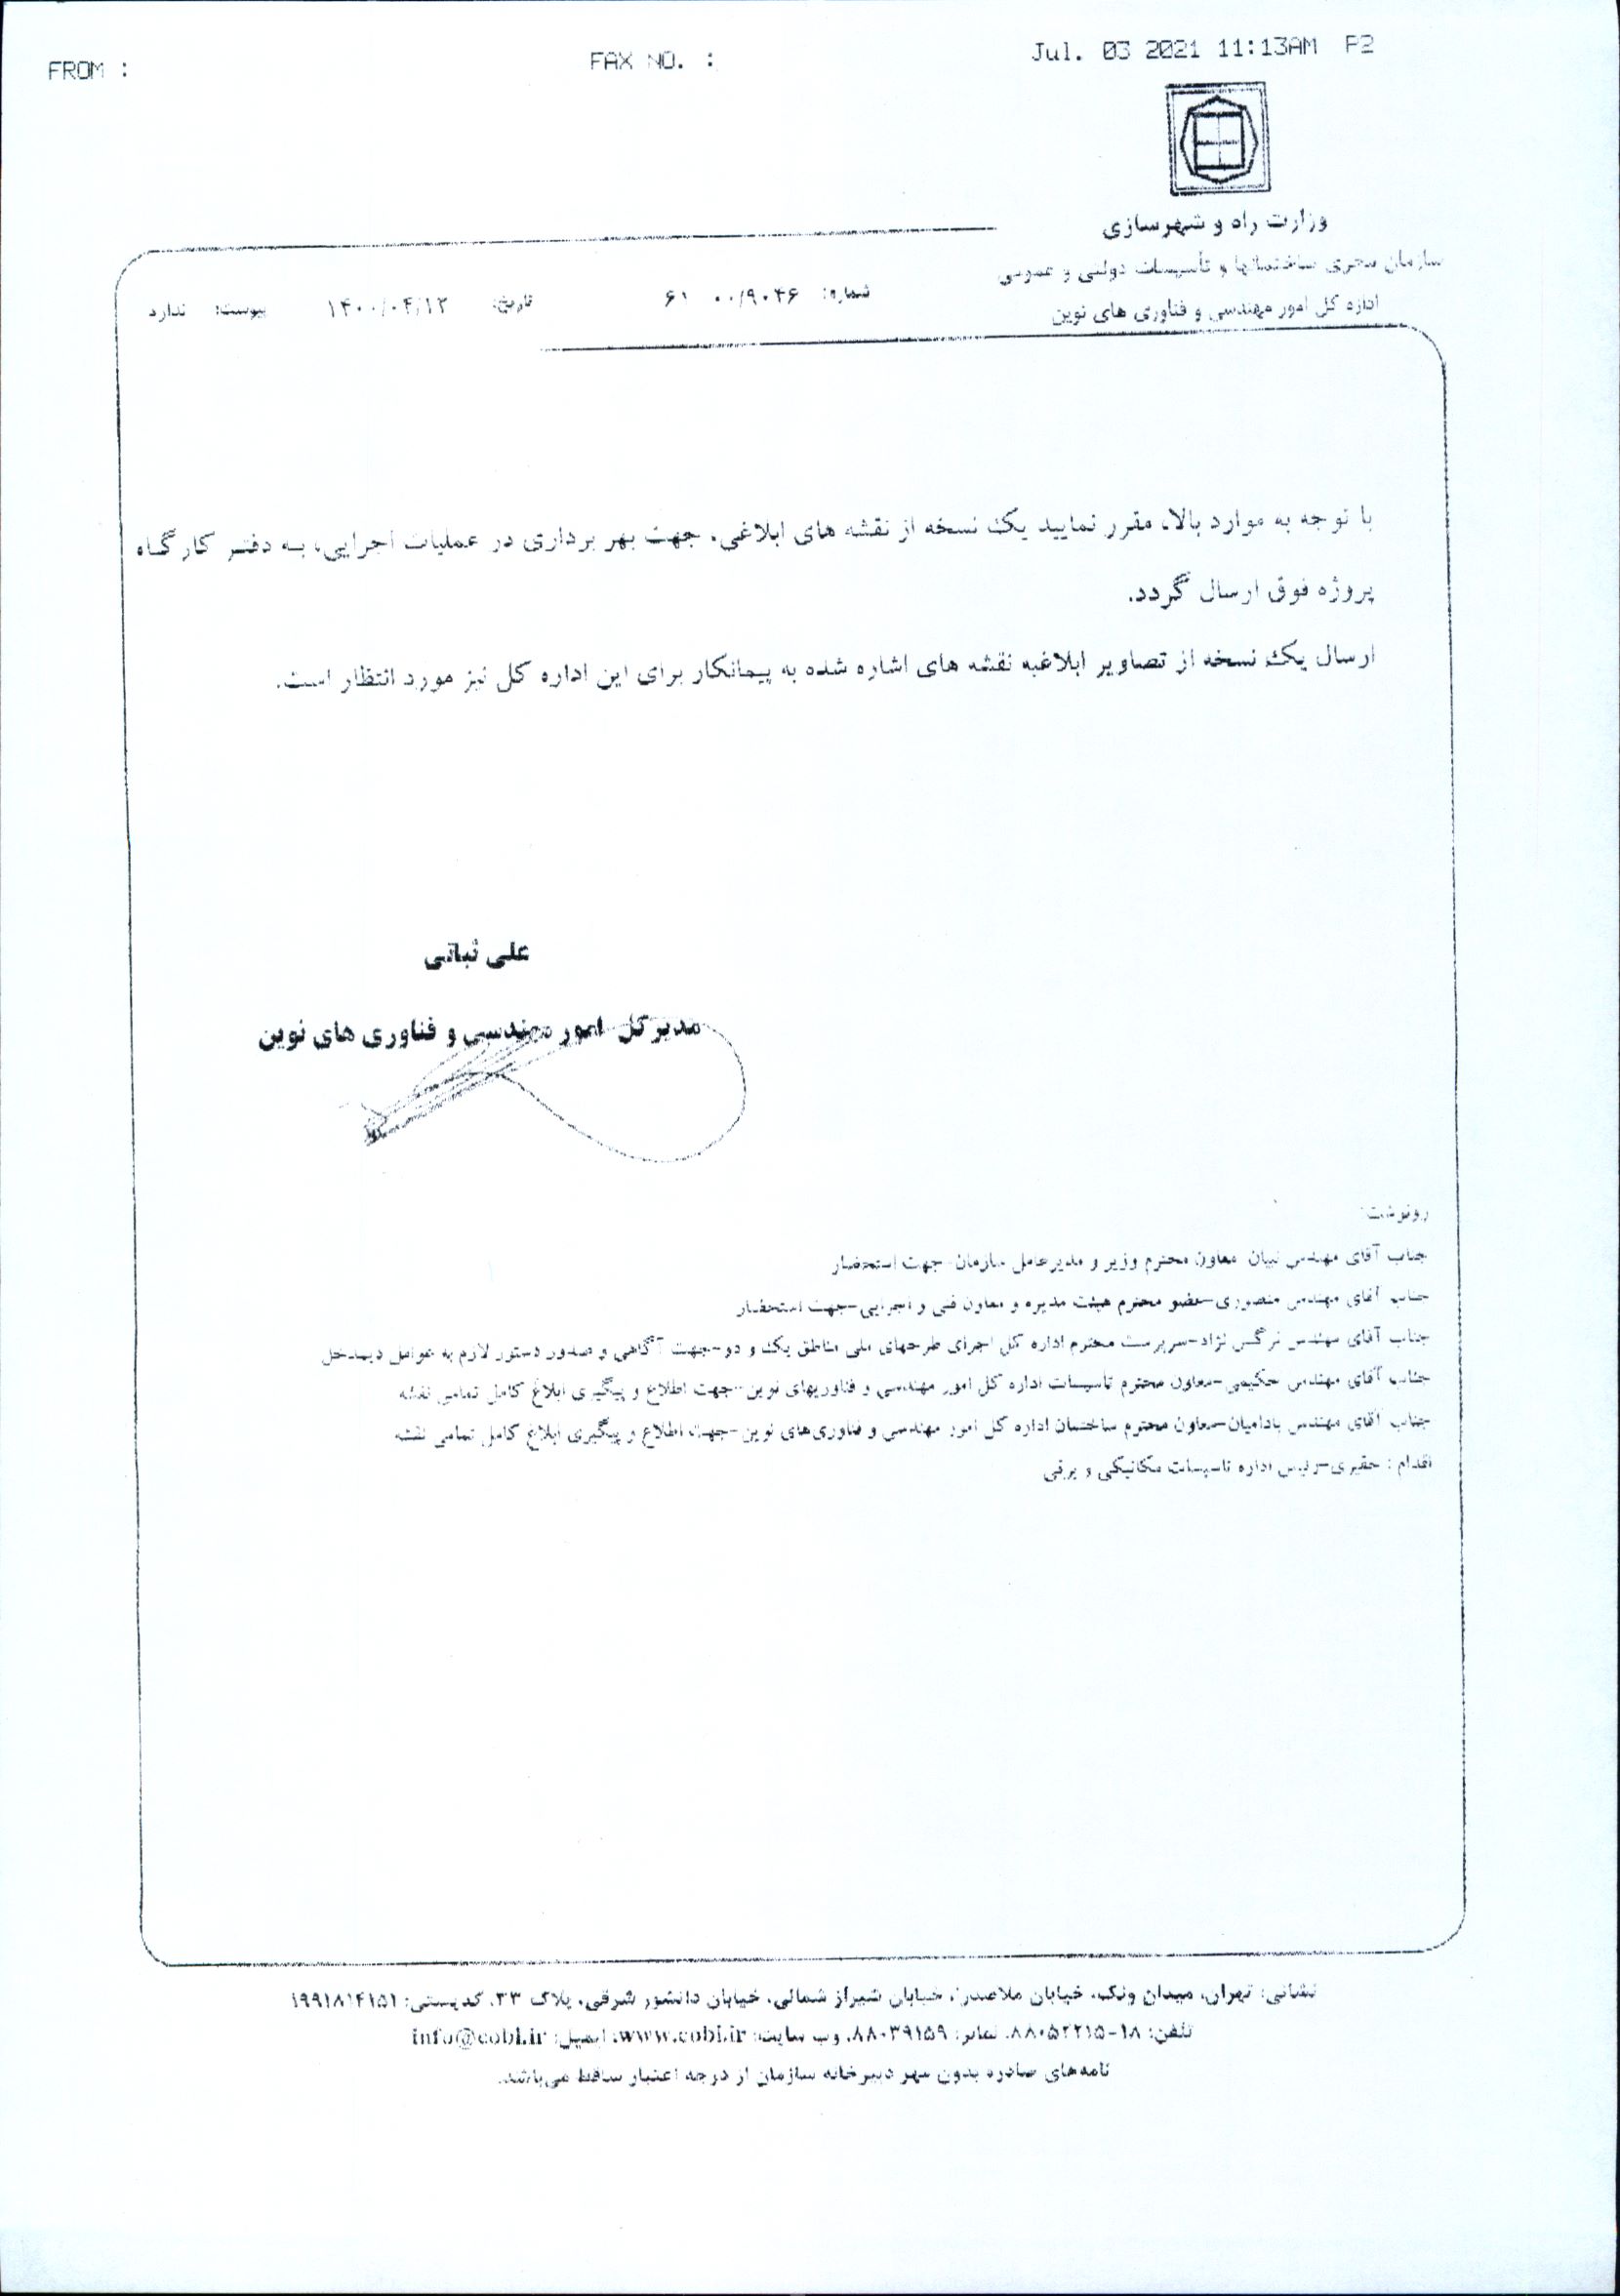 FROM :
FAX NO. :
Jul. 03 2021 11:13AM P2
وزارت راه و شهرسازی
سازمان مجری ساختمانها و تأسیسات دولتی و عمومی
اداره کل امور مهندسی و فناوری های نوین
شماره: ۰۰/۹۰۴۶ ۶۱ تاریخ: ۱۴۰۰/۰۴/۱۲ پیوست: ندارد
با توجه به موارد بالا، مقرر نمایید یک نسخه از نقشه های ابلاغی، جهت بهر برداری در عملیات اجرایی، به دفتر کارگاه
پروژه فوق ارسال گردد.
ارسال یک نسخه از تصاویر ابلاغیه نقشه های اشاره شده به پیمانکار برای این اداره کل نیز مورد انتظار است.
علی ثباتی
مدیرکل امور مهندسی و فناوری های نوین
رونوشت:
جناب آقای مهندس معاون محترم وزیر و مدیرعامل سازمان- جهت استحضار
جناب آقای مهندس منصوری-عضو محترم هیئت مدیره و معاون فنی و اجرایی-جهت استحضار
جناب آقای مهندس نرگس نژاد-سرپرست محترم اداره کل اجرای طرحهای ملی مناطق یک و دو-جهت آگاهی و صدور دستور لازم به عوامل ذیمدخل
جناب آقای مهندس حکیمی-معاون محترم تاسیسات اداره کل امور مهندسی و فناوریهای نوین-جهت اطلاع و پیگیری ابلاغ کامل تمامی نقشه
جناب آقای مهندس بادامیان-معاون محترم ساختمان اداره کل امور مهندسی و فناوری‌های نوین-جهت اطلاع و پیگیری ابلاغ کامل تمامی نقشه
اقدام : حقیری-رئیس اداره تاسیسات مکانیکی و برقی
نشانی: تهران، میدان ونک، خیابان ملاصدرا، خیابان شیراز شمالی، خیابان دانشور شرقی، پلاک ۳۳، کدپستی: ۱۹۹۱۸۱۴۱۵۱
تلفن: ۱۸-۸۸۰۵۲۲۱۵، نمابر: ۸۸۰۳۹۱۵۹، وب سایت: www.cobi.ir، ایمیل: info@cobi.ir
نامه‌های صادره بدون مهر دبیرخانه سازمان از درجه اعتبار ساقط می‌باشد.